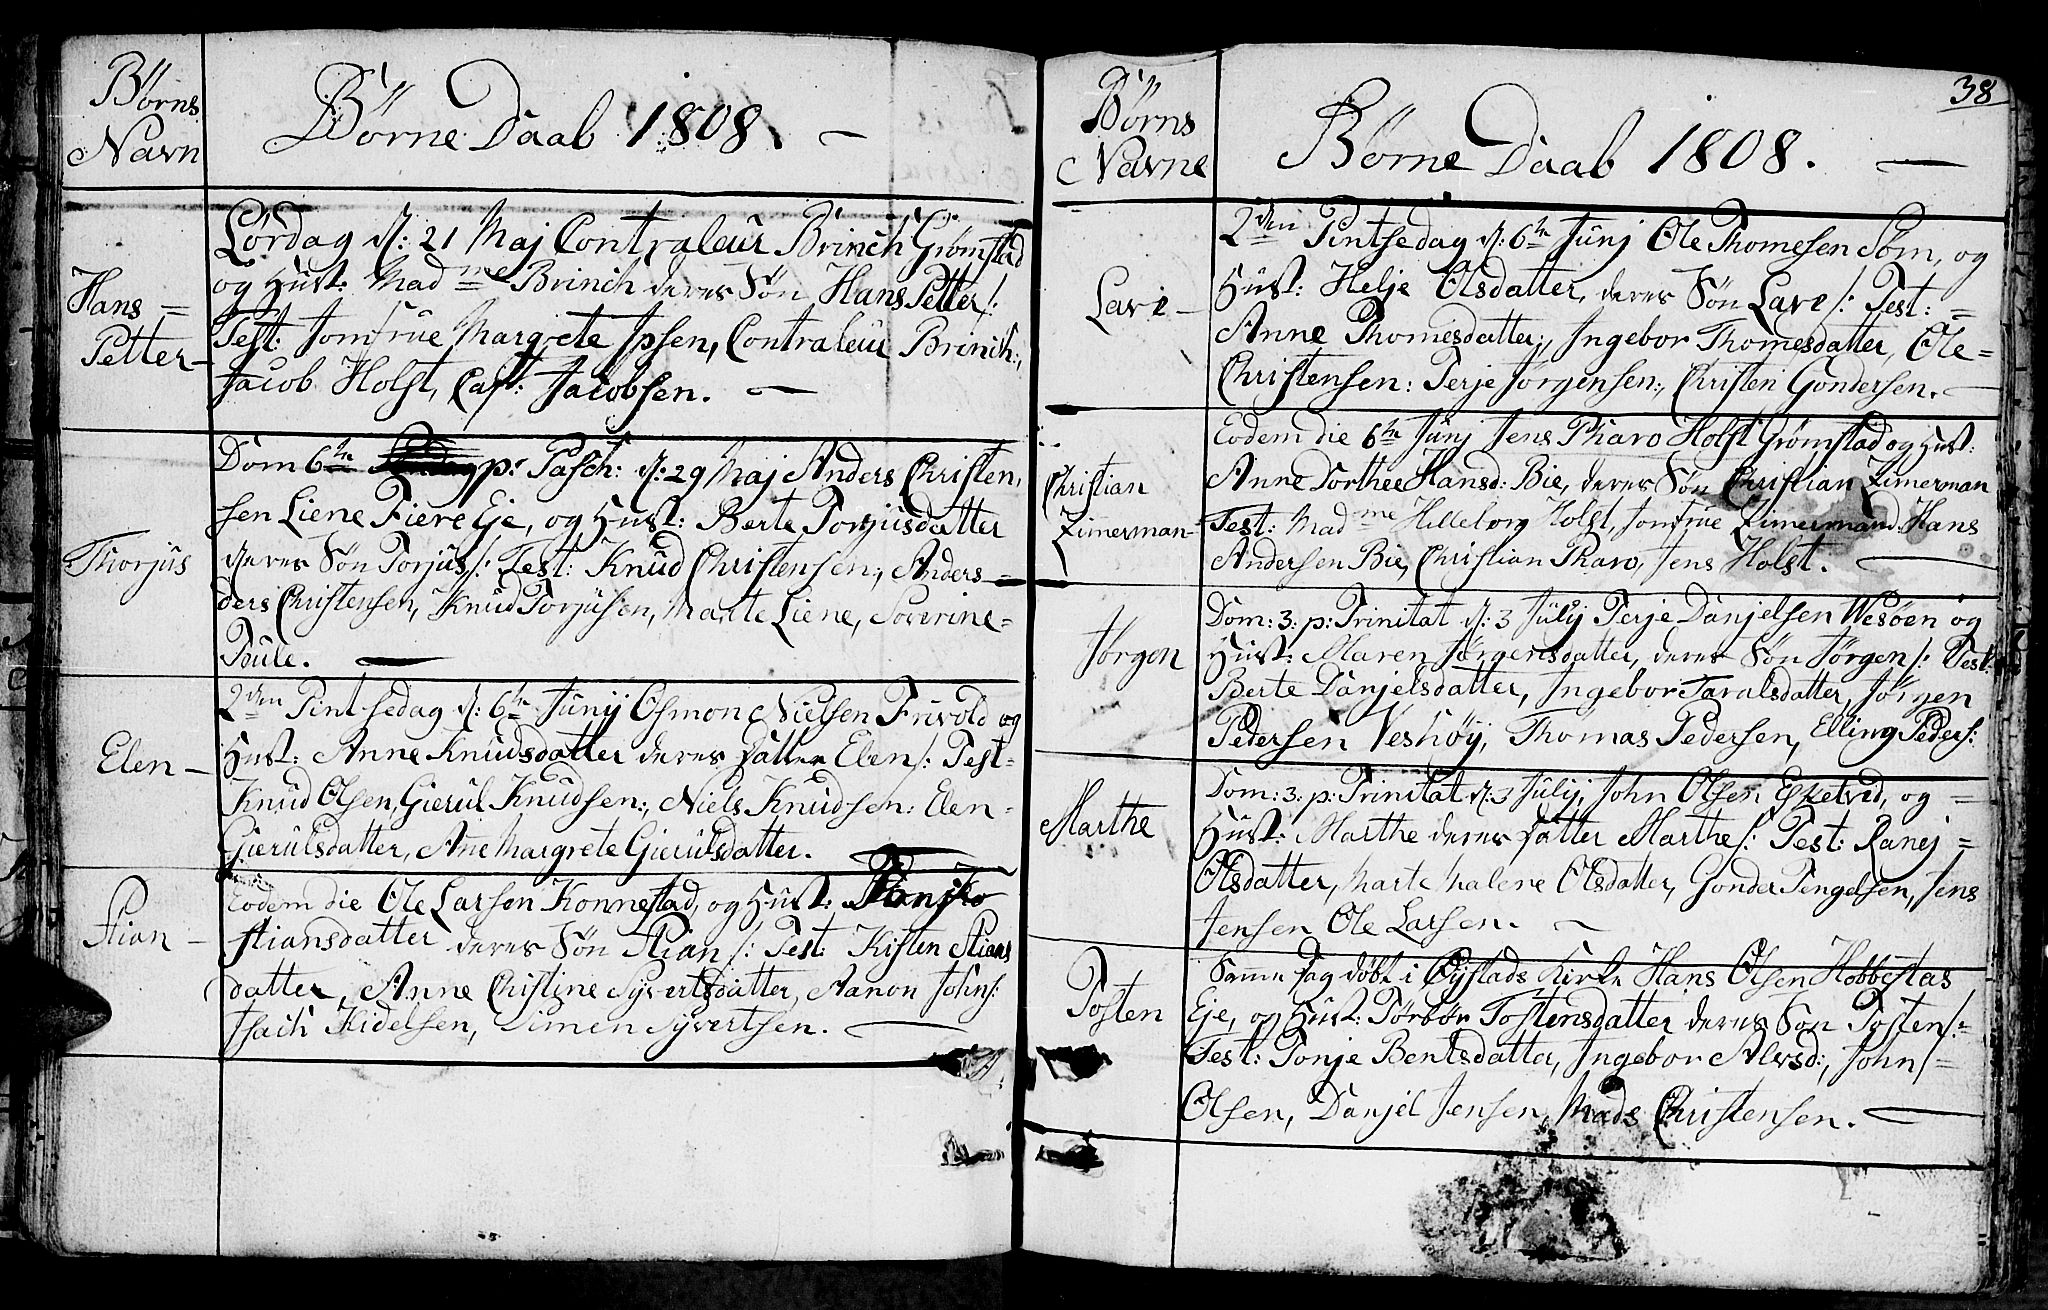 Børns
Navn
Børne Daab 1808. —
Hans =
Petter —
Lørdag d: 21 Maj Contraleur Brinch Grømstad
og Hust: Mad me Brinch deres Søn Hans Petter /:
Test: Jomfrue Margrete Ipsen, Contraleur Brinch:,
Jacob Holst, Capt: Jacobsen. —
Thorjus
Dom 6te p: Pasch: d: 29 Maj Anders Christen,
sen Liene Fiere Eje, og Hust: Berte Torjusdatter
deres Søn Torjus /: Test: Knud Christensen:, Anders =
ders Christensen, Knud Torjusen, Marte Liene, Soverine =
Tule. —
Elen —
2den Pintsedag d: 6te Junij Osmon Nielsen Fuvold og
Hust: Anne Knudsdatter deres Datter Elen /: Test =
Knud Olsen, Gierul Knudsen:, Niels Knudsen: Elen =
Gierulsdatter, Ane Margrete Gierulsdatter. —
Stian —
Eodem die Ole Larsen Konnestad, og Hust:
Stiansdatter deres Søn Stian /: Test: Kisten Stians
datter, Anne Christine Syvertsdatter, Aanon Johns:
Isach Kidelsen, Simen Syvertsen. —
38
Børns
Navne
Børne Daab 1808. —
Lave —
2den Pintsedag d: 6te Junj Ole Thomesen Søm, og
Hust: Helje Olsdatter, deres Søn Lave /: Test: =
Anne Thomesdatter;, Ingebor Thomesdatter, Ole =
Christensen: Terje Jørgensen:, Christen Gondersen. —
Christian
Zimerman —
Eodem die 6te Junj Jens Pharo Holst Grømstad og Hust:
Anne Dorthee Hansd: Bie, deres Søn Christian Zimerman
Test: Mad me Hilleborg Holst, Jomfrue Zimermand: Hans
Andersen Bie, Christian Pharo, Jens Holst. —
Jørgen
Dom: 3: p: Trinitat d: 3 Julij Terje Danjelsen Wesøen og
Hust: Maren Jørgensdatter, deres Søn Jørgen /: Test:
Berte Danjelsdatter, Ingebor Taralsdatter, Jørgen
Pedersen Veshøy, Thomas Pedersen, Elling Peders:
Marthe
Dom: 3: p: Trinitat d: 3 Julij, John Olsen Egetved, og =
Hust: Marthe deres Datter Marthe /: Test: Ranej =
Olsdatter, Marte Malene Olsdatter, Gonder Tengelsen, Jens
Jensen Ole Larsen. —
Tosten
Samme Dag døbt i Øystads Kirke Hans Olsen Hobbestas
Eje, og Hust: Tørbør Tostensdatter deres Søn Tosten /: =
Test: Tonje Bentsdatter, Ingebor Alvsd:, John =
Olsen, Danjel Jensen, Mads Christensen. —